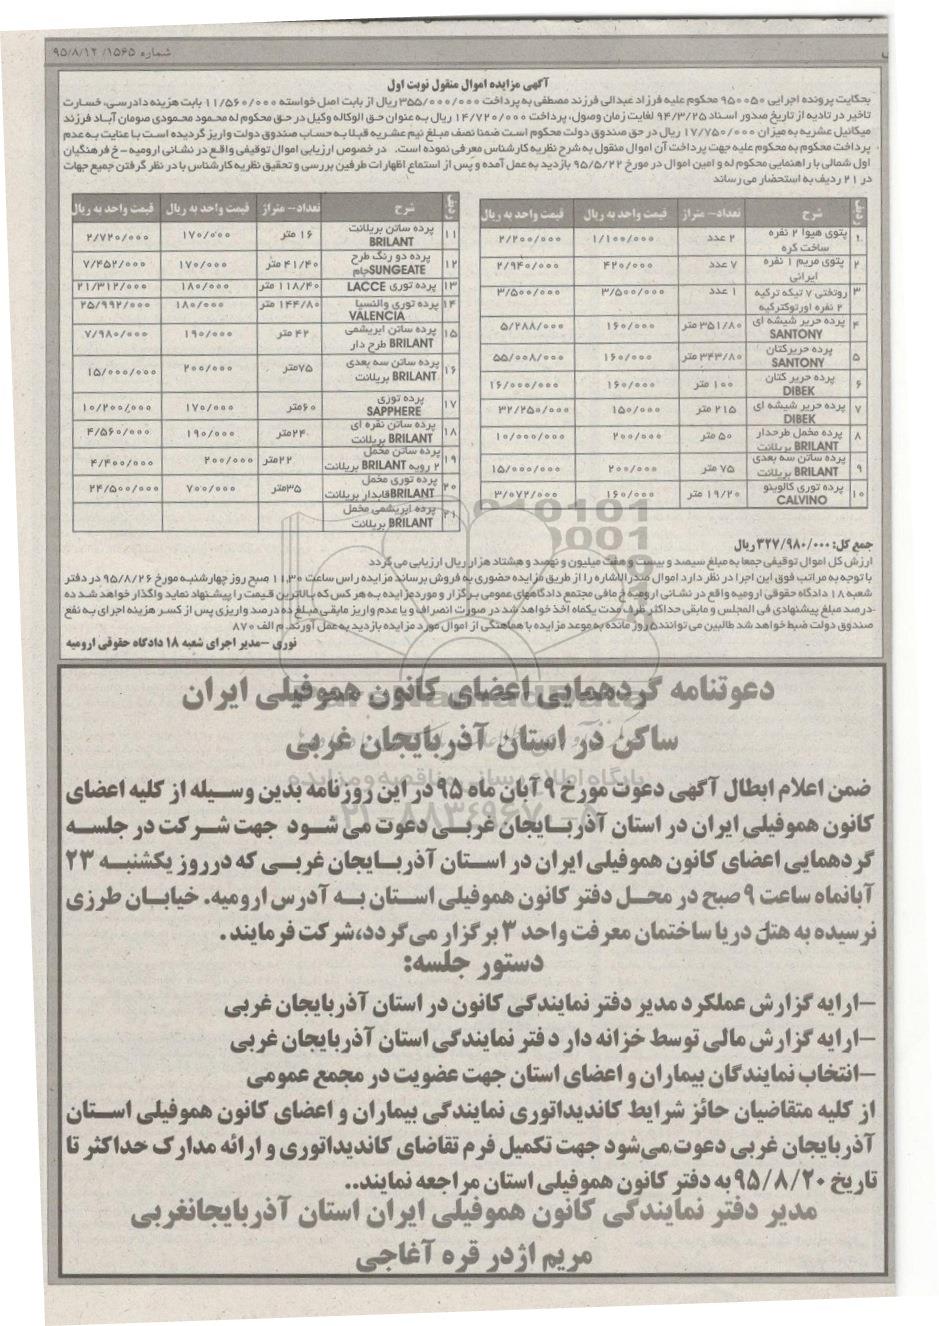 شماره ۱۵۶۵/ ۹۵/۸/۱۲
آگهی مزایده اموال منقول نوبت اول
بحکایت پرونده اجرایی ۹۵۰۰۵۰ محکوم علیه فرزاد عبدالی فرزند مصطفی به پرداخت ۳۵۵/۰۰۰/۰۰۰ ریال از بابت اصل خواسته ۱۱/۵۶۰/۰۰۰ بابت هزینه دادرسی، خسارت
تاخیر در تادیه از تاریخ صدور اسناد ۹۴/۳/۲۵ لغایت زمان وصول، پرداخت ۱۴/۷۲۰/۰۰۰ ریال به عنوان حق الوکاله وکیل در حق محکوم له محمود محمودی صومان آباد فرزند
میکائیل عشریه به میزان ۱۷/۷۵۰/۰۰۰ ریال در حق صندوق دولت محکوم است ضمنا نصف مبلغ نیم عشریه قبلا به حساب صندوق دولت واریز گردیده است با عنایت به عدم
پرداخت محکوم به محکوم علیه جهت پرداخت آن اموال منقول به شرح نظریه کارشناس معرفی نموده است. در خصوص ارزیابی اموال توقیفی واقع در نشانی ارومیه - خ فرهنگیان
اول شمالی با راهنمایی محکوم له و امین اموال در مورخ ۹۵/۵/۲۲ بازدید به عمل آمده و پس از استماع اظهارات طرفین بررسی و تحقیق نظریه کارشناس با در نظر گرفتن جمیع جهات
در ۲۱ ردیف به استحضار می رساند
ردیف شرح تعداد- متراژ قیمت واحد به ریال قیمت واحد به ریال
۱ پتوی هیوا ۲ نفره ساخت کره ۲ عدد ۱/۱۰۰/۰۰۰ ۲/۲۰۰/۰۰۰
۲ پتوی مریم ۱ نفره ایرانی ۷ عدد ۴۲۰/۰۰۰ ۲/۹۴۰/۰۰۰
۳ روتختی ۷ تیکه ترکیه ۲ نفره اورتوکترکیه ۱ عدد ۳/۵۰۰/۰۰۰ ۳/۵۰۰/۰۰۰
۴ پرده حریر شیشه ای SANTONY ۳۵۱/۸۰ متر ۱۶۰/۰۰۰ ۵/۲۸۸/۰۰۰
۵ پرده حریرکتان SANTONY ۳۴۳/۸۰ متر ۱۶۰/۰۰۰ ۵۵/۰۰۸/۰۰۰
۶ پرده حریر کتان DIBEK ۱۰۰ متر ۱۶۰/۰۰۰ ۱۶/۰۰۰/۰۰۰
۷ پرده حریر شیشه ای DIBEK ۲۱۵ متر ۱۵۰/۰۰۰ ۳۲/۲۵۰/۰۰۰
۸ پرده مخمل طرحدار BRILANT بریلانت ۵۰ متر ۲۰۰/۰۰۰ ۱۰/۰۰۰/۰۰۰
۹ پرده ساتن سه بعدی BRILANT بریلانت ۷۵ متر ۲۰۰/۰۰۰ ۱۵/۰۰۰/۰۰۰
۱۰ پرده توری کالوینو CALVINO ۱۹/۲۰ متر ۱۶۰/۰۰۰ ۳/۰۷۲/۰۰۰
ردیف شرح تعداد- متراژ قیمت واحد به ریال قیمت واحد به ریال
۱۱ پرده ساتن بریلانت BRILANT ۱۶ متر ۱۷۰/۰۰۰ ۲/۷۲۰/۰۰۰
۱۲ پرده دو رنگ طرح SUNGEATEجام ۴۱/۴۰ متر ۱۷۰/۰۰۰ ۷/۴۵۲/۰۰۰
۱۳ پرده توری LACCE ۱۱۸/۴۰ متر ۱۸۰/۰۰۰ ۲۱/۳۱۲/۰۰۰
۱۴ پرده توری والنسیا VALENCIA ۱۴۴/۸۰ متر ۱۸۰/۰۰۰ ۲۵/۹۹۲/۰۰۰
۱۵ پرده ساتن ابریشمی BRILANT طرح دار ۴۲ متر ۱۹۰/۰۰۰ ۷/۹۸۰/۰۰۰
۱۶ پرده ساتن سه بعدی BRILANT بریلانت ۷۵متر ۲۰۰/۰۰۰ ۱۵/۰۰۰/۰۰۰
۱۷ پرده توری SAPPHERE ۶۰متر ۱۷۰/۰۰۰ ۱۰/۲۰۰/۰۰۰
۱۸ پرده ساتن نقره ای BRILANT بریلانت ۲۴متر ۱۹۰/۰۰۰ ۴/۵۶۰/۰۰۰
۱۹ پرده ساتن مخمل ۲ رویه BRILANT بریلانت ۲۲متر ۲۰۰/۰۰۰ ۴/۴۰۰/۰۰۰
۲۰ پرده توری مخمل BRILANTقابدار بریلانت ۳۵متر ۷۰۰/۰۰۰ ۲۴/۵۰۰/۰۰۰
۲۱ پرده ابریشمی مخمل BRILANT بریلانت
جمع کل: ۳۲۷/۹۸۰/۰۰۰ریال
ارزش کل اموال توقیفی جمعا به مبلغ سیصد و بیست و هفت میلیون و نهصد و هشتاد هزار ریال ارزیابی می گردد
با توجه به مراتب فوق این اجرا در نظر دارد اموال صدرالاشاره را از طریق مزایده حضوری به فروش برساند مزایده راس ساعت ۱۱.۳۰ صبح روز چهارشنبه مورخ ۹۵/۸/۲۶ در دفتر
شعبه ۱۸ دادگاه حقوقی ارومیه واقع در نشانی ارومیه خ مافی مجتمع دادگاههای عمومی برگزار و مورد مزایده به هر کس که بالاترین قیمت را پیشنهاد نماید واگذار خواهد شد ده
-درصد مبلغ پیشنهادی فی المجلس و مابقی حداکثر ظرف مدت یکماه اخذ خواهد شد در صورت انصراف و یا عدم واریز مابقی مبلغ ده درصد واریزی پس از کسر هزینه اجرای به نفع
صندوق دولت ضبط خواهد شد طالبین می توانند ۵ روز مانده به موعد مزایده با هماهنگی از اموال مورد مزایده بازدید به عمل آورند. م الف ۸۷۰
نوری -مدیر اجرای شعبه ۱۸ دادگاه حقوقی ارومیه
دعوتنامه گردهمایی اعضای کانون هموفیلی ایران
ساکن در استان آذربایجان غربی
پایگاه اطلاع رسانی مناقصه و مزایده
۰۲۱-۸۸۳۴۹۶۷۰-۵
ضمن اعلام ابطال آگهی دعوت مورخ ۹ آبان ماه ۹۵ در این روزنامه بدین وسیله از کلیه اعضای
کانون هموفیلی ایران در استان آذربایجان غربی دعوت می شود جهت شرکت در جلسه
گردهمایی اعضای کانون هموفیلی ایران در استان آذربایجان غربی که درروز یکشنبه ۲۳
آبانماه ساعت ۹ صبح در محل دفتر کانون هموفیلی استان به آدرس ارومیه. خیابان طرزی
نرسیده به هتل دریا ساختمان معرفت واحد ۳ برگزار می گردد،شرکت فرمایند.
دستور جلسه:
-ارایه گزارش عملکرد مدیر دفتر نمایندگی کانون در استان آذربایجان غربی
-ارایه گزارش مالی توسط خزانه دار دفتر نمایندگی استان آذربایجان غربی
-انتخاب نمایندگان بیماران و اعضای استان جهت عضویت در مجمع عمومی
از کلیه متقاضیان حائز شرایط کاندیداتوری نمایندگی بیماران و اعضای کانون هموفیلی استان
آذربایجان غربی دعوت می‌شود جهت تکمیل فرم تقاضای کاندیداتوری و ارائه مدارک حداکثر تا
تاریخ ۹۵/۸/۲۰ به دفتر کانون هموفیلی استان مراجعه نمایند..
مدیر دفتر نمایندگی کانون هموفیلی ایران استان آذربایجانغربی
مریم اژدر قره آغاجی